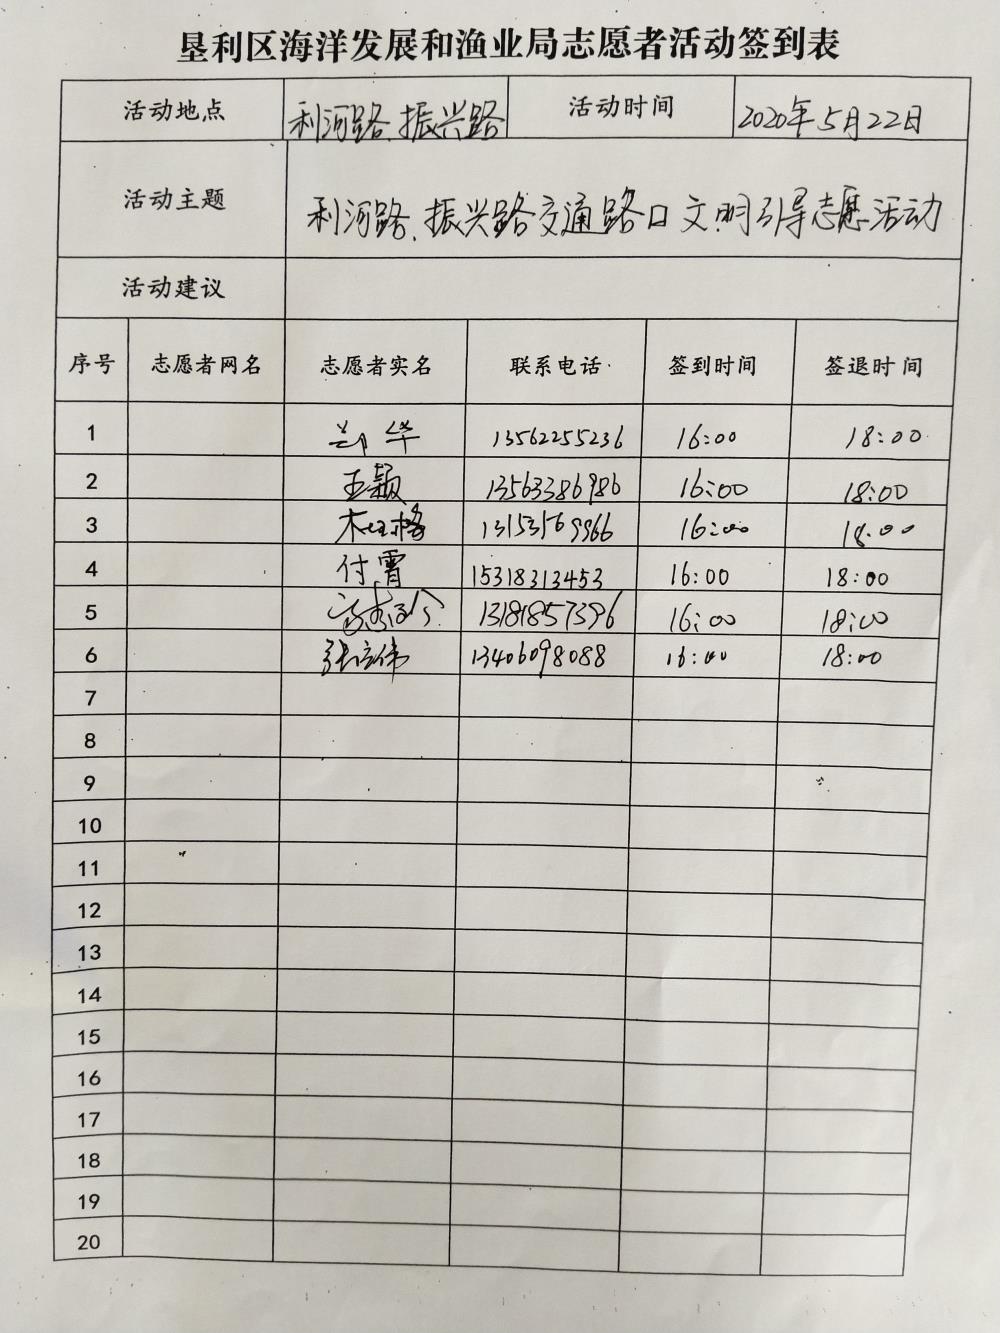 垦利区海洋发展和渔业局志愿者活动签到表
活动地点 利河路、振兴路 活动时间 2020年5月22日
活动主题 利河路、振兴路交通路口文明引导志愿活动
活动建议
序号 志愿者网名 志愿者实名 联系电话 签到时间 签退时间
1 华 13562255236 16:00 18:00
2 王颖 13563386986 16:00 18:00
3 13153169966 16:00 18:00
4 付霄 15318313453 16:00 18:00
5 13181857396 16:00 18:00
6 张立伟 13406098088 16:00 18:00
7
8
9
10
11
12
13
14
15
16
17
18
19
20